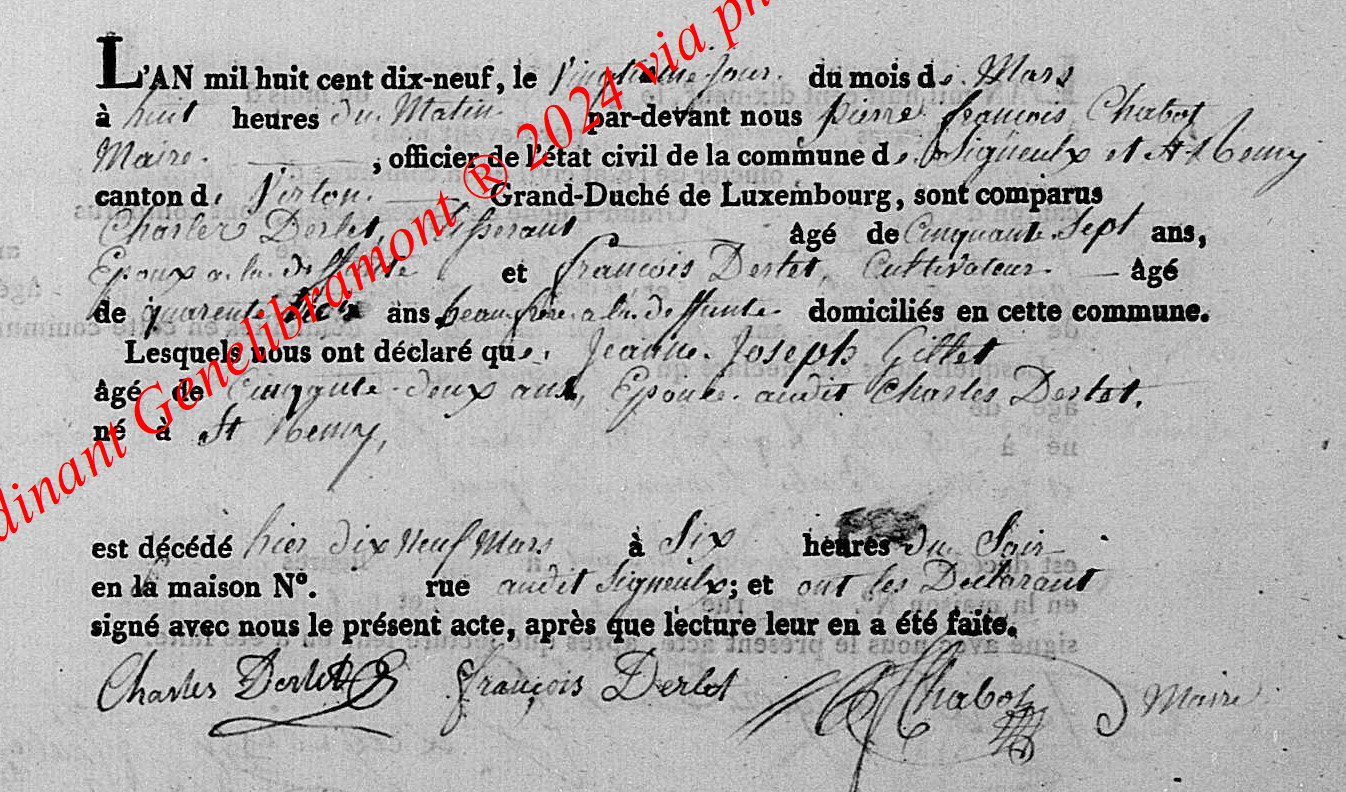 L'AN mil huit cent dix-neuf, le Vingtieme Jour du mois de Mars
à huit heures du Matin par-devant nous pierre françois Chabot
Maire, officier de l'état civil de la commune de Signeulx et St Remy
canton de Virton Grand-Duché de Luxembourg, sont comparus
Charles Derlet, Tisserant âgé de Cinquante Sept ans,
Epoux a la deffunte et françois Derlet, Cultivateur âgé
de quarente ans, beaufrère a la deffunte domiciliés en cette commune.
Lesquels nous ont déclaré que Jeanne Joseph Gillet
âgé de Cinqante deux ans, Epouse audit Charles Derlet,
né à St Remy,
est décédé hier dix Neuf Mars à Six heures du Soir
en la maison N°. rue audit Signeulx; et ont les Declarant
signé avec nous le présent acte, après que lecture leur en a été faite.
Charles Derlet françois Derlet Chabot Maire
dinant Genelibramont ® 2024 via ph